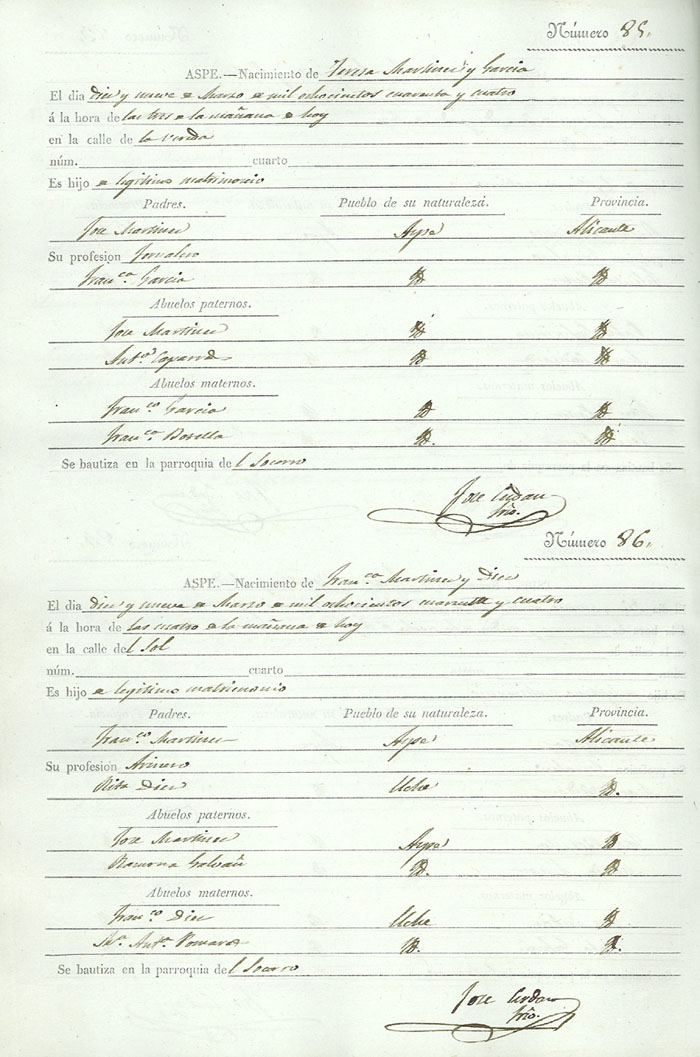 Número 85.
ASPE.—Nacimiento de Teresa Martinez y Garcia
El dia diez y nueve de Marzo de mil ochocientos cuarenta y cuatro
á la hora de las tres de la mañana de hoy
en la calle de la
núm. cuarto
Es hijo de legitimo matrimonio
Padres. Pueblo de su naturaleza. Provincia.
Jose Martinez Aspe Alicante
Su profesion Jornalero
Franca. Garcia
Abuelos paternos.
Jose Martinez
Anta.
Abuelos maternos.
Franco. Garcia
Franca.
Se bautiza en la parroquia del Socorro
Jose Cerdan
Srio.
Número 86.
ASPE.—Nacimiento de Franco. Martinez y Diez
El dia diez y nueve de Marzo de mil ochocientos cuarenta y cuatro
á la hora de las cuatro de la mañana de hoy
en la calle del Sol
núm. cuarto
Es hijo de legitimo matrimonio
Padres. Pueblo de su naturaleza. Provincia.
Franco. Martinez Aspe Alicante
Su profesion Arriero
Rita Diez Elche
Abuelos paternos.
Jose Martinez Aspe
Ramona Galvañ
Abuelos maternos.
Franco. Diez Elche
Ma. Anta.
Se bautiza en la parroquia del Socorro
Jose Cerdan
Srio.